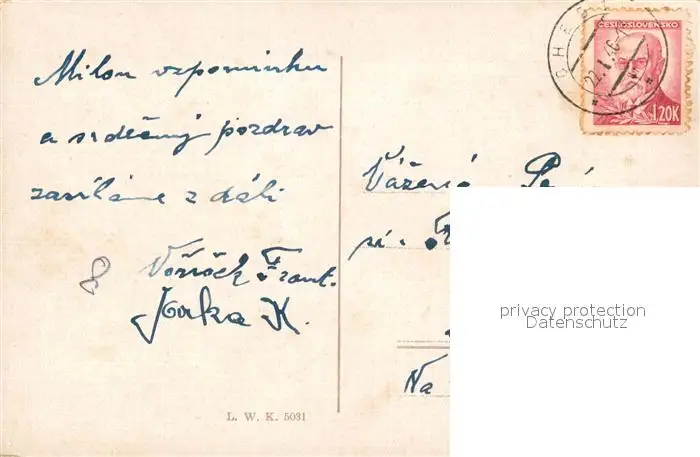 Milou vzpomínku
a srdečný pozdrav
zasíláme z dáli
Frant.
K.
L. W. K. 5031
ČESKOSLOVENSKO
1.20K
CHEB
22.I.46
Vážená
Na
privacy protection
Datenschutz